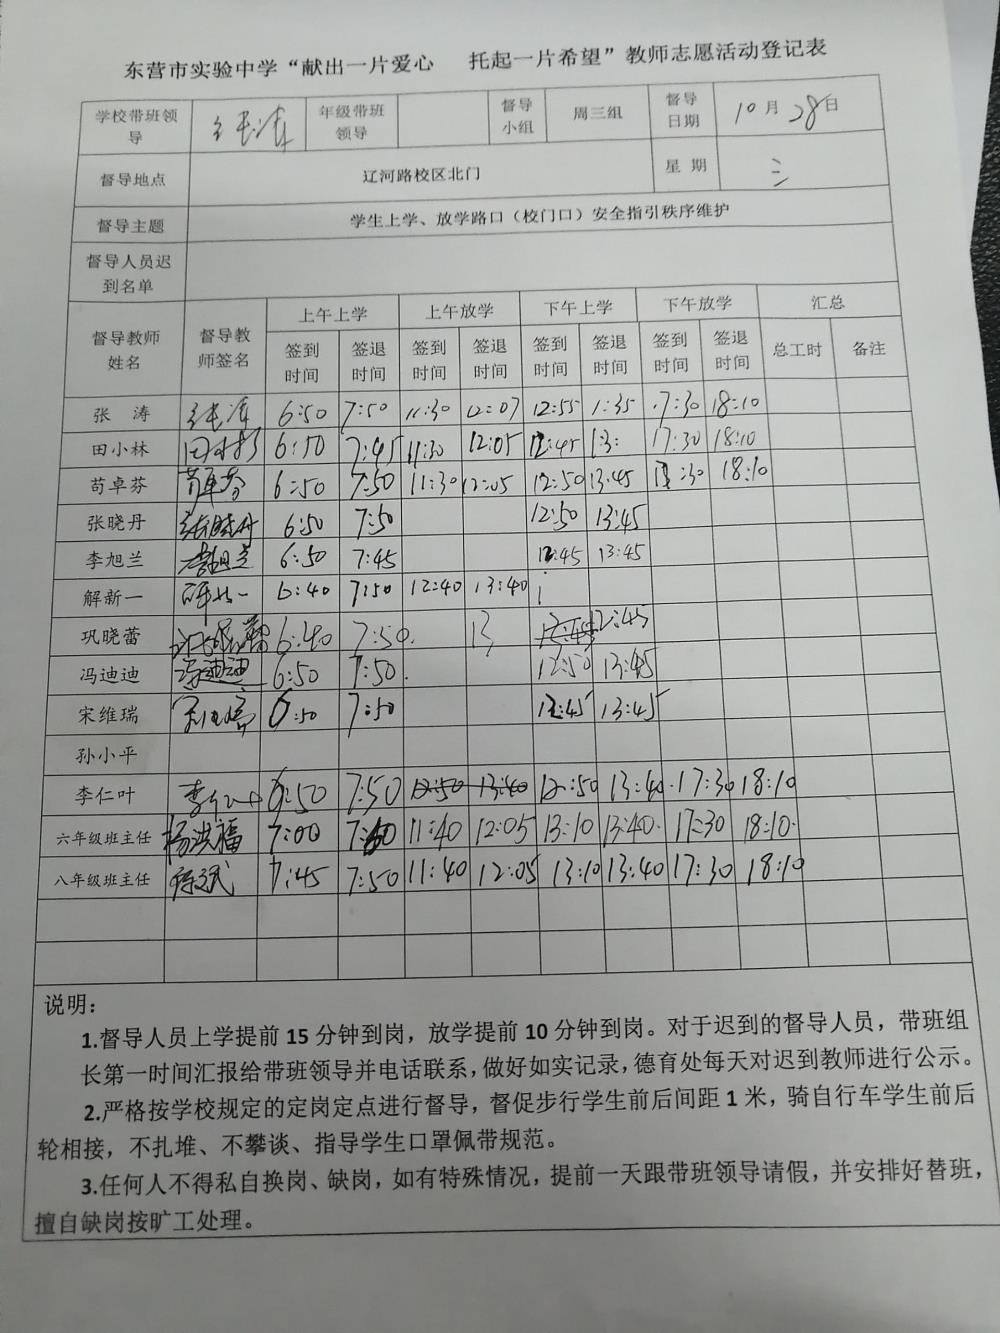 东营市实验中学“献出一片爱心 托起一片希望”教师志愿活动登记表
学校带班领导 张涛 年级带班领导 督导小组 周三组 督导日期 10月28日
督导地点 辽河路校区北门 星 期 三
督导主题 学生上学、放学路口（校门口）安全指引秩序维护
督导人员迟到名单
督导教师姓名 督导教师签名 上午上学 上午放学 下午上学 下午放学 汇总
签到时间 签退时间 签到时间 签退时间 签到时间 签退时间 签到时间 签退时间 总工时 备注
张 涛 张涛 6:50 7:50 11:30 12:07 12:55 1:35 17:30 18:10
田小林 田小林 6:50 7:45 11:30 12:05 12:45 13: 17:30 18:10
苟卓芬 苟卓芬 6:50 7:50 11:30 12:05 12:50 13:45 :30 18:10
张晓丹 张晓丹 6:50 7:50 12:50 13:45
李旭兰 李旭兰 6:50 7:45 12:45 13:45
解新一 解新一 6:40 7:50 12:40 13:40
巩晓蕾 6:40 7:50. 13 12:45 12:45
冯迪迪 冯迪迪 6:50 7:50. 12:50 13:45
宋维瑞 宋维瑞 6:50 7:50 12:45 13:45
孙小平
李仁叶 李仁叶 6:50 7:50 12:50 13:40 12:50 13:40. 17:30 18:10
六年级班主任 杨洪福 7:00 7:50 11:40 12:05 13:10 13:40. 17:30 18:10.
八年级班主任 7:45 7:50 11:40 12:05 13:10 13:40 17:30 18:10
说明：
1.督导人员上学提前 15 分钟到岗，放学提前 10 分钟到岗。对于迟到的督导人员，带班组
长第一时间汇报给带班领导并电话联系，做好如实记录，德育处每天对迟到教师进行公示。
2.严格按学校规定的定岗定点进行督导，督促步行学生前后间距 1 米，骑自行车学生前后
轮相接，不扎堆、不攀谈、指导学生口罩佩带规范。
3.任何人不得私自换岗、缺岗，如有特殊情况，提前一天跟带班领导请假，并安排好替班，
擅自缺岗按旷工处理。